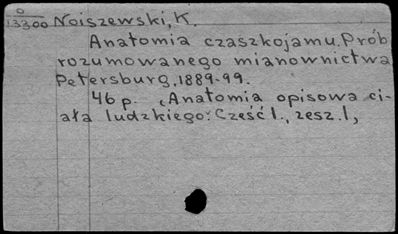 0
13300 Noiszewski, K.
Anatomia czaszkojamu. Prób
rozumowanego mianownictwa
Petersburg, 1889-99.
46 p. (Anatomia opisowa ci-
ała ludzkiego: Cześć I., zesz. I,